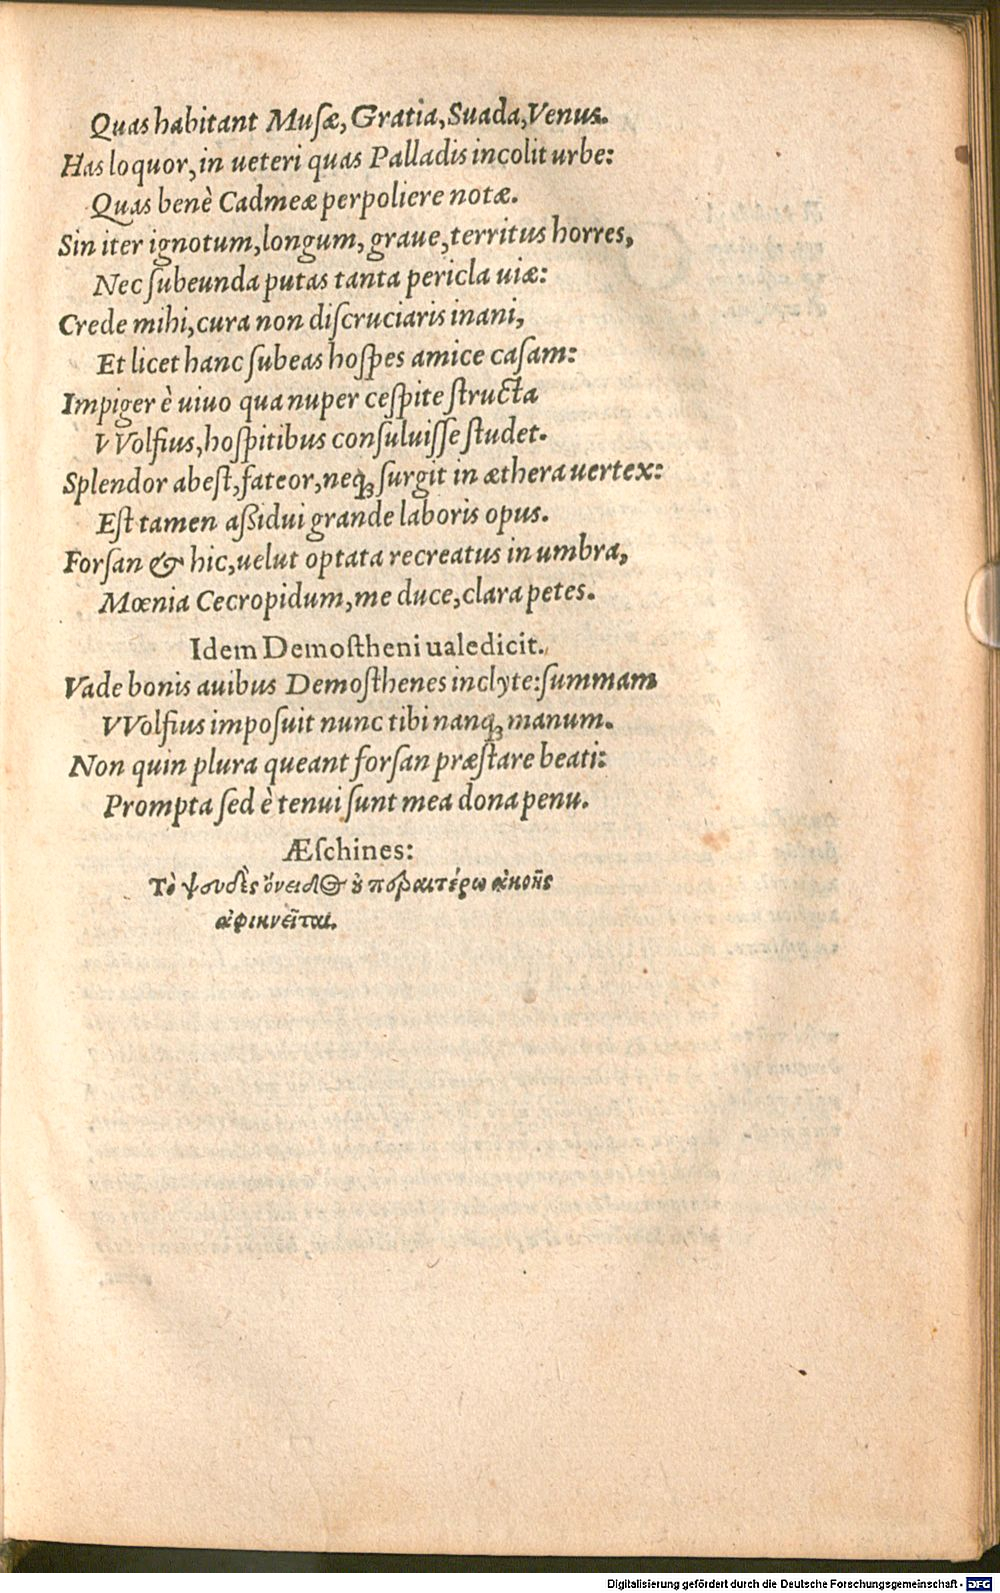 Quas habitant Muſæ, Gratia, Suada, Venus.
Has loquor, in ueteri quas Palladis incolit urbe:
Quas benè Cadmeæ perpoliere notæ.
Sin iter ignotum, longum, graue, territus horres,
Nec ſubeunda putas tanta pericla uiæ:
Crede mihi, cura non diſcruciaris inani,
Et licet hanc ſubeas hoſpes amice caſam:
Impiger è uiuo qua nuper ceſpite ſtructa
VVolfius, hoſpitibus conſuluiſſe ſtudet.
Splendor abeſt, fateor, neqꝫ ſurgit in æthera uertex:
Eſt tamen aſsidui grande laboris opus.
Forſan & hic, uelut optata recreatus in umbra,
Mœnia Cecropidum, me duce, clara petes.
Idem Demoſtheni ualedicit.
Vade bonis auibus Demoſthenes inclyte: ſummam
VVolfius impoſuit nunc tibi nanqꝫ manum.
Non quin plura queant forſan præſtare beati:
Prompta ſed è tenui ſunt mea dona penu.
Æſchines:
Τὸ ψευδὲς ὄνειδος οὐ περαιτέρω ἀκοῆς
ἀφικνεῖται.
Digitalisierung gefördert durch die Deutsche Forschungsgemeinschaft - DFG